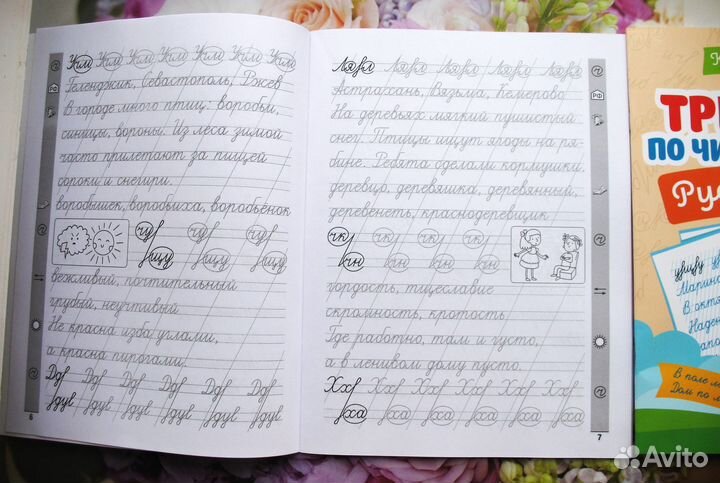 Уким Уким Уким Уким Уким Уким Уким
Геленджик, Севастополь, Ржев
В городе много птиц: воробьи,
синицы, вороны. Из леса зимой
часто прилетают за пищей
сороки и снегири.
воробышек, воробьиха, воробьёнок
чу чу чу
щу щу щу
вежливый, почтительный
грубый, неучтивый
Не красна изба углами,
а красна пирогами.
6
РФ
Астрахань, Вязьма, Кемерово
На деревьях мягкий пушистый
снег. Птицы ищут ягоды на ря-
бине. Ребята сделали кормушки.
деревцо, деревяшка, деревянный,
деревенеть, краснодеревщик
чк чк чк чк
чн чн чн чн
гордость, тщеславие
скромность, кротость
Где работно, там и густо,
а в ленивом дому пусто.
Хх Хх Хх Хх Хх Хх Хх
ха ха ха ха ха ха
7
РФ
ТР
ПО ЧИ
Ру
Марин
В окт
Наде
В поле
Дом по
Avito